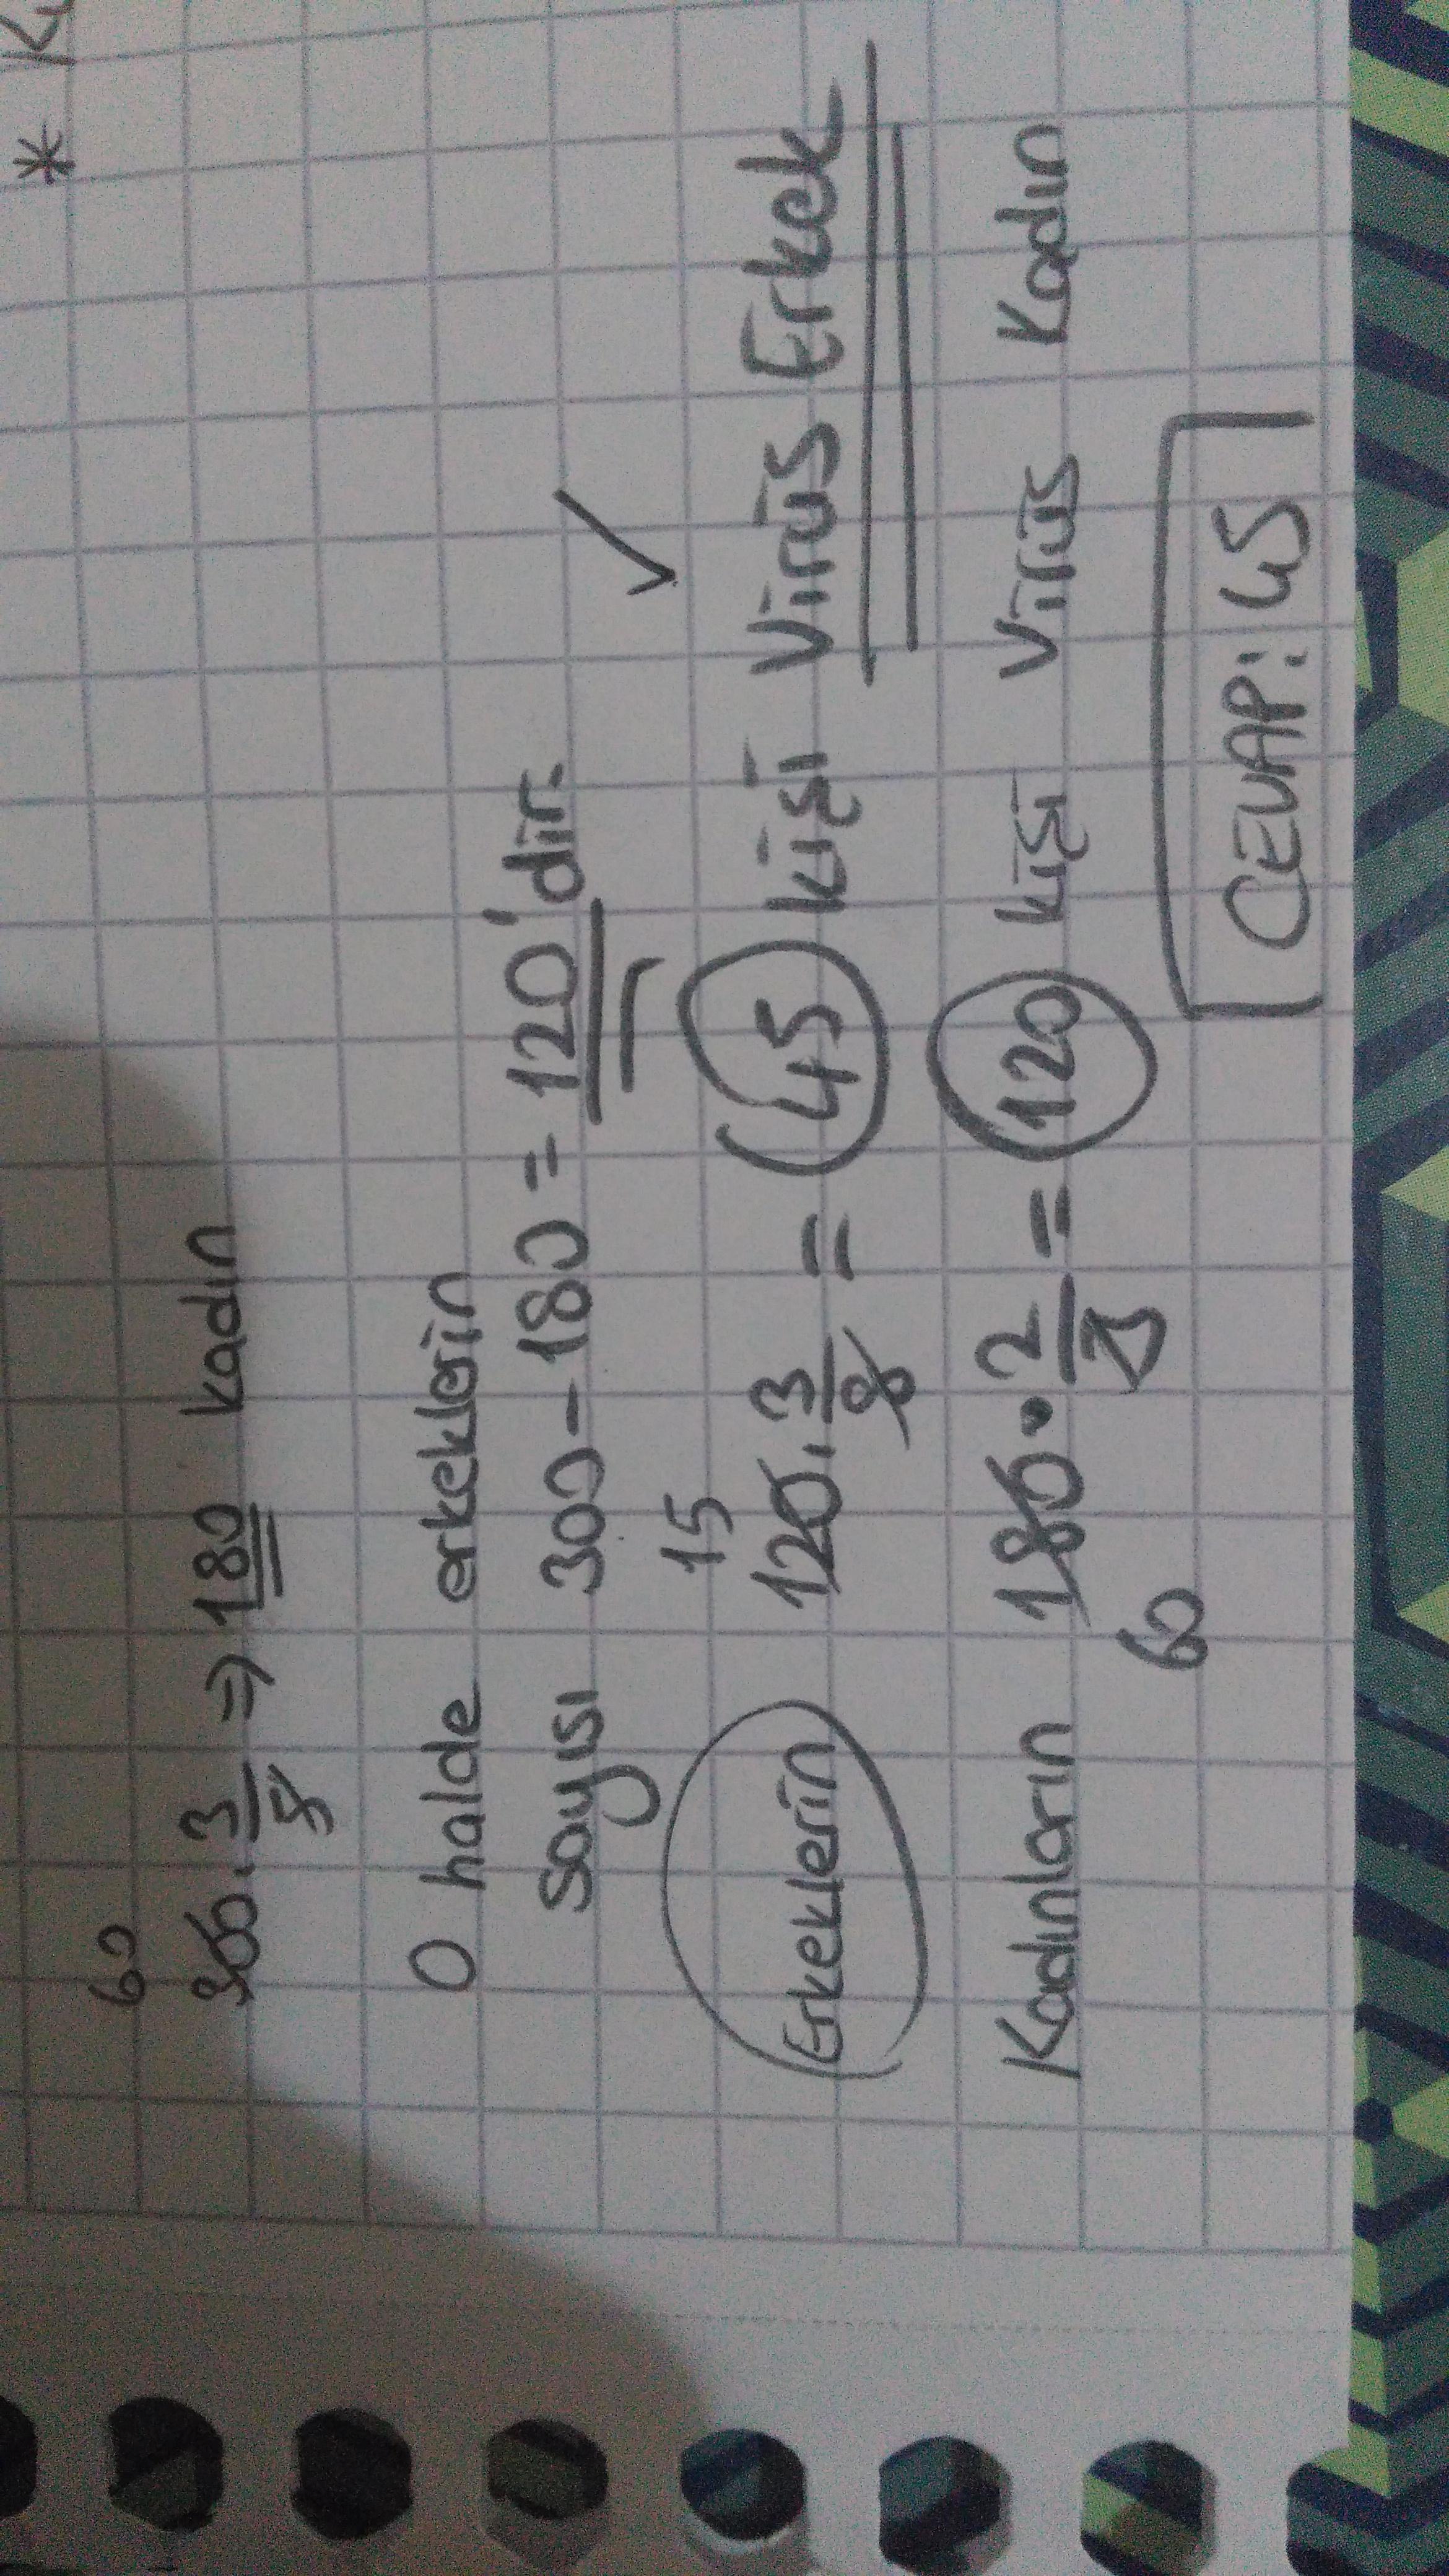 * K
60
300 . 3/5 ⇒ 180 kadın
O halde erkeklerin
sayısı 300 - 180 = 120'dir.
15
Erkeklerin 120 . 3/8 = 45 kişi Virüs Erkek
Kadınların 180 • 2/3 = 120 kişi Virüs Kadın
60
CEVAP: 45